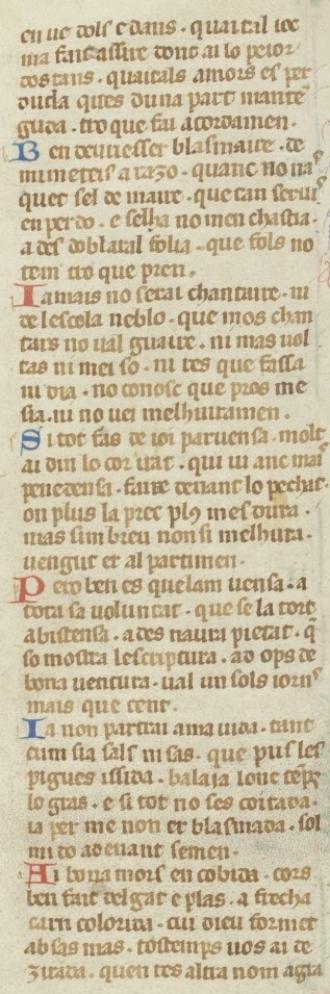 en uc dols e dans . quar tal ioc
ma fait assire dont ai lo peior
dos tans . quaitals amors es per
duda qües duna part mante
guda . tro que fai acordamen .
B en deuri esser blasmaire . de
mi meteis a razo . quanc no nas
quet sel de maire . que tan serui
en perdo . e selha no men chastia .
a des doblaral folia . que fols no
tem tro que pren .
I amais no serai chantaire . ni
de lescola neblo . que mos chan
tars no ual guaire . ni mas uol
tas ni mei so . ni res que fassa
ni dia . no conosc que pros me
sia . ni no uei melhuiramen .
S i tot fas de ioi paruensa . molt
ai din lo cor irat . qui ui anc mai
penedensa . faire denant lo pechat .
on plus la prec plus mes dura .
mas sim breu non si melhura .
uengut er al partimen .
P ero ben es quelam uensa . a
tota sa uoluntat . que se la tort
a bistensa . ades naura pietat . q̄
so mostra lescriptura . ad ops de
bona uentura . ual un sols iorns
mais que cent .
I a non partrai a ma uida . tant
cum sia sals ni sas . que pus les
pigues issida . balaia lonc temps
lo gras . e si tot no ses coitada .
ia per me non er blasmada . sol
mi do adenant semen .
A i bona mors encobida . cors
ben fait delgat e plas . a frecha
carn colorida . cui dieu formet
ab sas mas . tostemps uos ai de
zirada . quen res altra nom agra